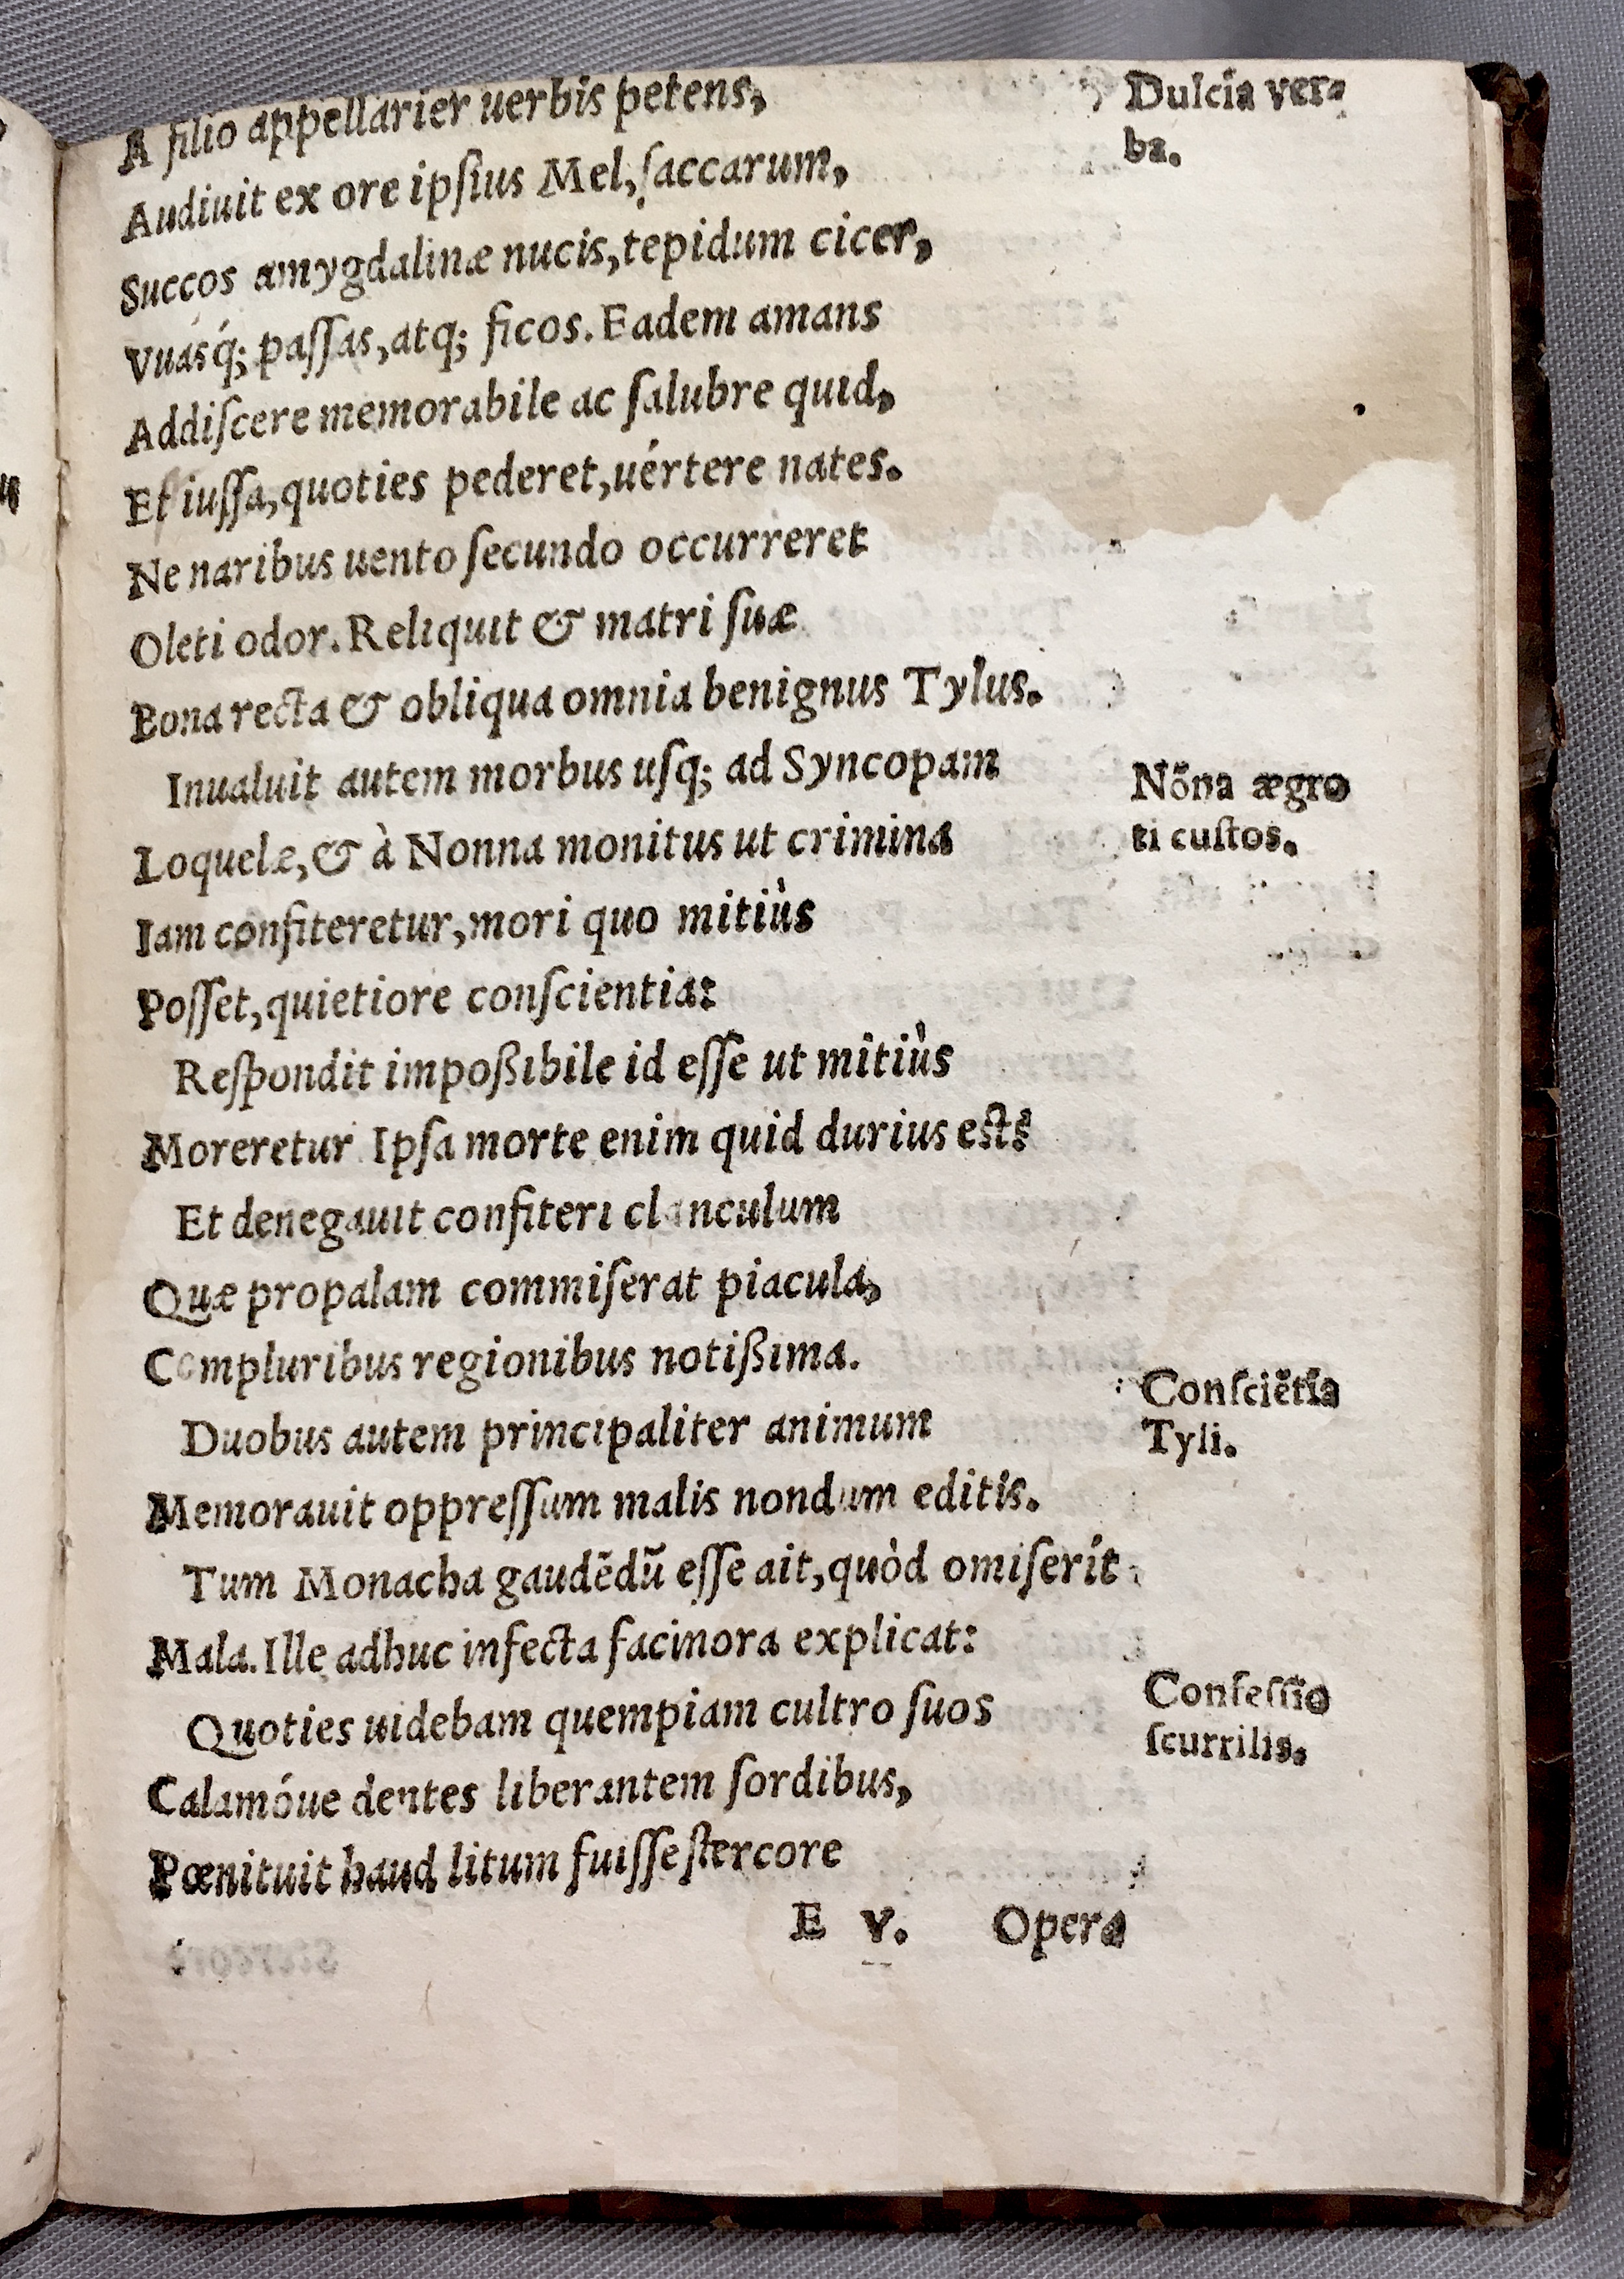 A filio appellarier uerbis petens,
Audiuit ex ore ipſius Mel, ſaccarum,
Succos amygdalinæ nucis, tepidum cicer,
Vuasq́; paſſas, atq; ficos. Eadem amans
Addiſcere memorabile ac ſalubre quid,
Et iuſſa, quoties pederet, uértere nates.
Ne naribus uento ſecundo occurreret
Oleti odor. Reliquit & matri ſuæ
Bona recta & obliqua omnia benignus Tylus.
Inualuit autem morbus uſq; ad Syncopam
Loquelæ, & à Nonna monitus ut crimina
Iam confiteretur, mori quo mitiùs
Poſſet, quietiore conſcientia:
Reſpondit impoßibile id eſſe ut mitiùs
Moreretur Ipſa morte enim quid durius est?
Et denegauit confiteri clanculum
Quæ propalam commiſerat piacula,
Compluribus regionibus notißima.
Duobus autem principaliter animum
Memorauit oppreſſum malis nondum editis.
Tum Monacha gaudēdū eſſe ait, quòd omiſerit
Mala. Ille adhuc infecta facinora explicat:
Quoties uidebam quempiam cultro ſuos
Calamóue dentes liberantem ſordibus,
Pœnituit haud litum fuiſſe ſtercore
E v. Opera
Dulcia ver-
ba.
Nōna ægro
ti cuſtos.
Conſciētia
Tyli.
Confeſſio
ſcurrilis.